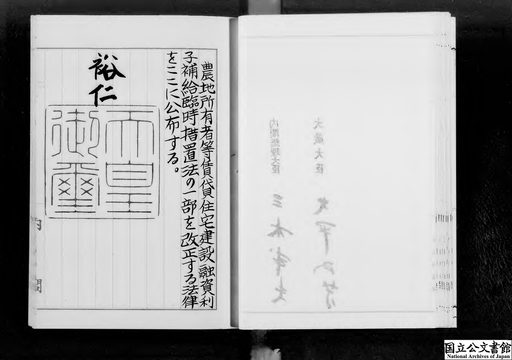 農地所有者等賃貸住宅建設融資利
子補給臨時措置法の一部を改正する法律
をここに公布する。
裕仁
天皇
御璽
内閣
国立公文書館
National Archives of Japan